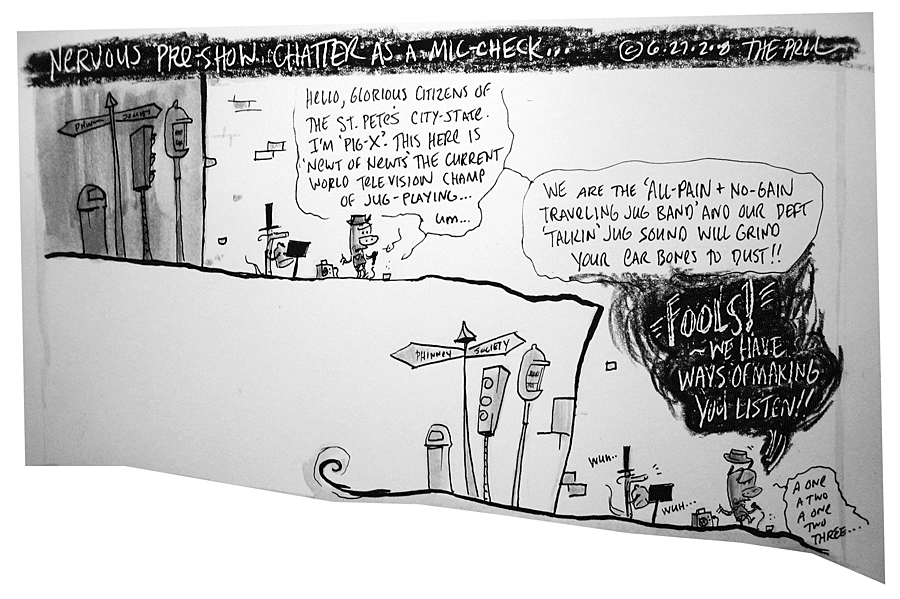 NERVOUS PRE-SHOW CHATTER AS A MIC-CHECK...
© 6.27.2.8 THE PRLL
PHINN
SOCIETY
HELLO, GLORIOUS CITIZENS OF
THE ST. PETE'S CITY-STATE.
I'M 'PIG-X'. THIS HERE IS
'NEWT OF NEWTS' THE CURRENT
WORLD TELEVISION CHAMP
OF JUG-PLAYING...
UM...
WE ARE THE 'ALL-PAIN + NO-GAIN
TRAVELING JUG BAND' AND OUR DEFT
'TALKIN' JUG SOUND WILL GRIND
YOUR EAR BONES TO DUST!!
FOOLS!
~WE HAVE
WAYS OF MAKING
YOU LISTEN!!
PHINNEY
SOCIETY
WUH..
WUH...
A ONE
A TWO
A ONE
TWO
THREE...